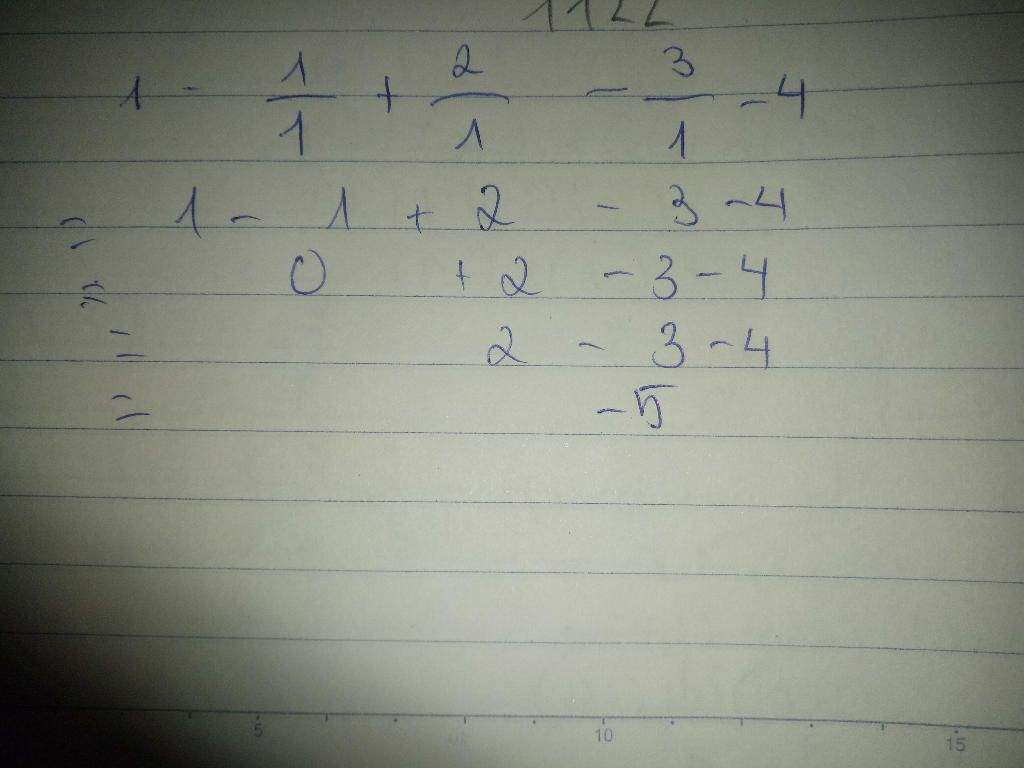 1 - 1/1 + 2/1 - 3/1 - 4
= 1 - 1 + 2 - 3 - 4
= 0 + 2 - 3 - 4
= 2 - 3 - 4
= -5
5 10 15